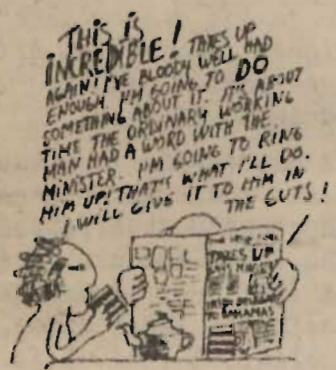 THIS IS
INCREDIBLE! TAXES UP
AGAIN! I'VE BLOODY WELL HAD
ENOUGH. I'M GOING TO DO
SOMETHING ABOUT IT. IT'S ABOUT
TIME THE ORDINARY WORKING
MAN HAD A WORD WITH THE
MINISTER. I'M GOING TO RING
HIM UP! THAT'S WHAT I'LL DO.
I WILL GIVE IT TO HIM IN
THE GUTS!
TAXES UP
BAHAMAS